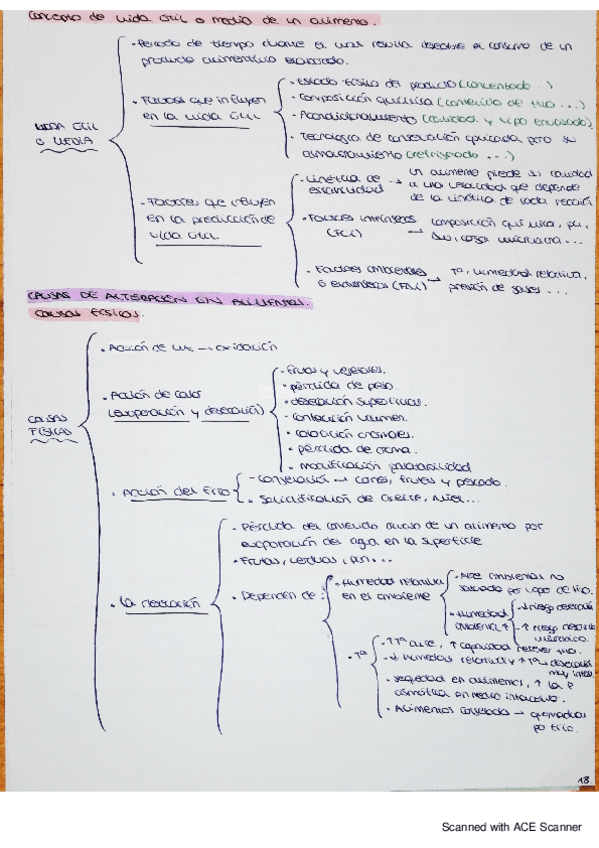 Concepto de vida útil o media de un alimento.
- Periodo de tiempo durante el cual resulta deseable el consumo de un
producto alimentario elaborado.
VIDA ÚTIL
O MEDIA
· Factores que influyen
en la vida útil
· Estado físico del producto (concentrado...)
- Composición química (contenido de H2O ...)
· Acondicionamiento (calidad y tipo envasado)
· Tecnología de conservación aplicada para su
almacenamiento (refrigerado ...)
· Factores que influyen
en la predicción de
vida útil.
· Cinética de
estabilidad
→ un alimento pierde su calidad
a una velocidad que depende
de la cinética de cada reacción
· Factores intrínsecos
(FCi) → composición química, pH,
Aw, carga microbiana ...
· Factores ambientales
o extrínsecos → Tª, humedad relativa,
presión de gases ...
CAUSAS DE ALTERACIÓN EN ALIMENTOS.
CAUSAS FÍSICAS.
CAUSAS
FÍSICAS
· Acción de luz → oxidación
· Acción de calor
(evaporación y desecación)
- Frutas y vegetales.
· pérdida de peso
· desecación superficial.
- contracción volumen.
· coloración anormales.
· pérdida de aroma.
· modificación palatabilidad
· Acción del frío
- Congelación → carnes, frutas y pescado.
· Solidificación de aceite, miel...
· La desecación
· Pérdida del contenido acuoso de un alimento por
evaporación del agua en la superficie
· Frutas, verduras, pan ...
· Dependen de:
· Humedad relativa
en el ambiente
- Aire ambiental no
saturado por vapor de H2O.
· Humedad
ambiental ↑
↓ riesgo desecación
↑ riesgo
microbiano.
· Tª
· ↑ Tª aire, ↑ capacidad retener H2O.
- ↓ humedad relativa y ↑ Tª → desecación
muy intensa.
· sequedad en alimentos, ↑ la P
osmótica en medio
· Alimentos congelados → quemaduras
por frío.
18
Scanned with ACE Scanner